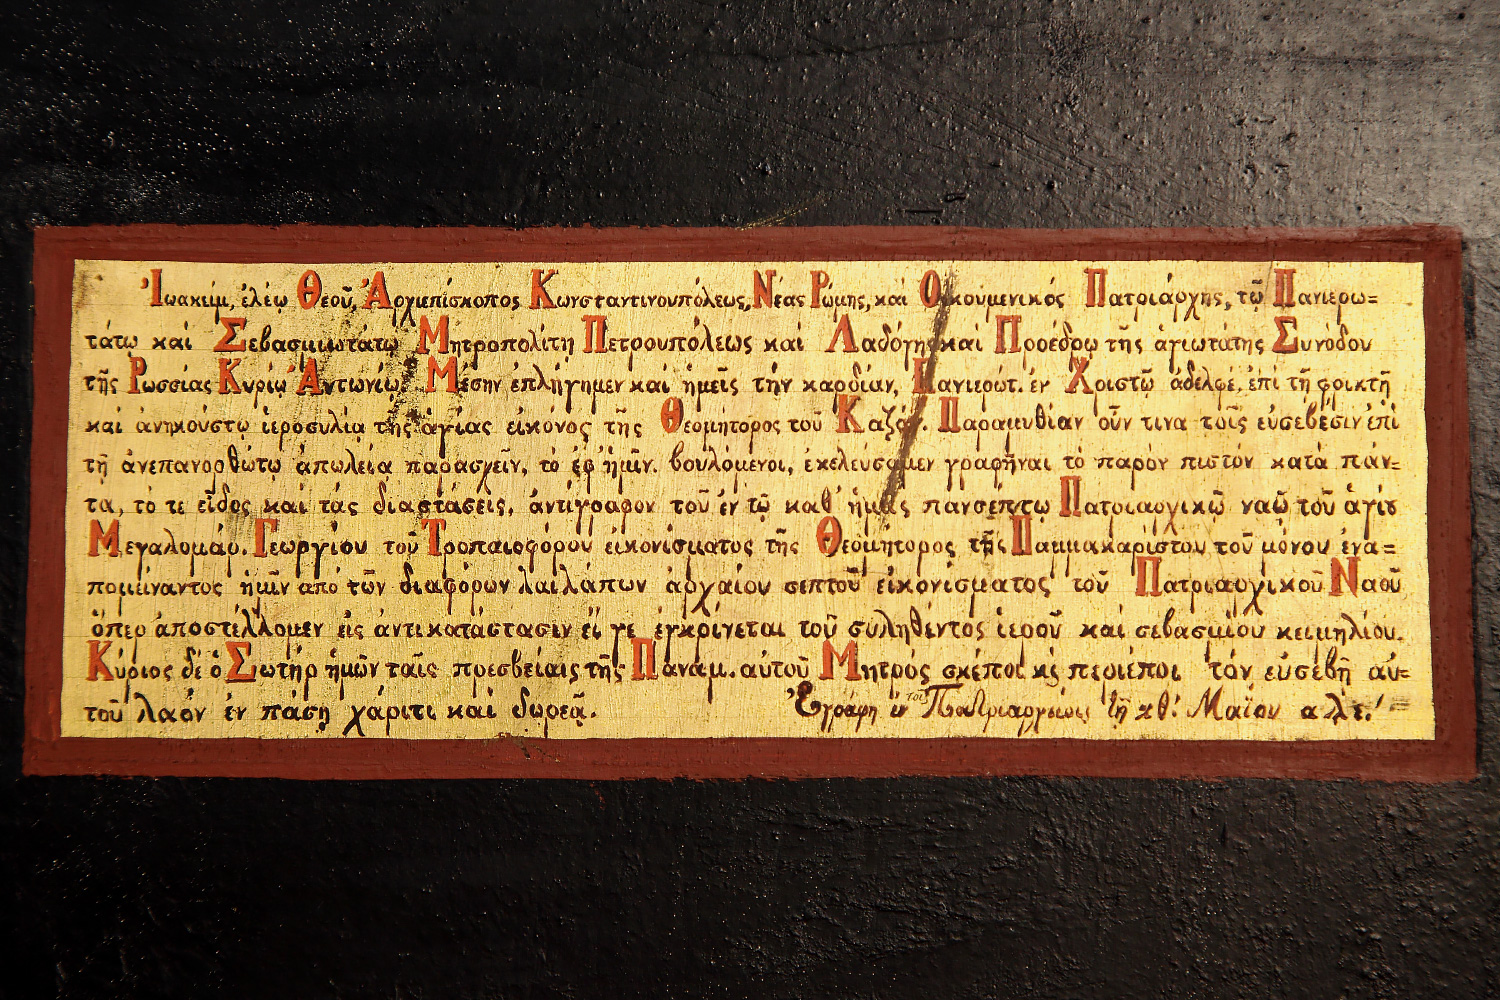 Ἰωακείμ, ἐλέῳ Θεοῦ, Ἀρχιεπίσκοπος Κωνσταντινουπόλεως, Νέας Ῥώμης, καὶ Οἰκουμενικὸς Πατριάρχης, τῷ Πανιερω=
τάτῳ καὶ Σεβασμιωτάτῳ Μητροπολίτῃ Πετρουπόλεως καὶ Λαδόγης καὶ Προέδρῳ τῆς ἁγιωτάτης Συνόδου
τῆς Ῥωσσίας Κυρίῳ Ἀντωνίῳ. Μέσην ἐπλήγημεν καὶ ἡμεῖς τὴν καρδίαν, Πανιερώτ. ἐν Χριστῷ ἀδελφέ, ἐπὶ τῇ φρικτῇ
καὶ ἀνηκούστῳ ἱεροσυλίᾳ τῆς ἁγίας εἰκόνος τῆς Θεομήτορος τοῦ Καζάν. Παραμυθίαν οὖν τινα τοῖς εὐσεβέσιν ἐπὶ
τῇ ἀνεπανορθώτῳ ἀπωλείᾳ παρασχεῖν, τὸ ἐφ' ἡμῖν, βουλόμενοι, ἐκελεύσαμεν γραφῆναι τὸ παρὸν πιστὸν κατὰ πάν=
τα, τό τε εἶδος καὶ τὰς διαστάσεις, ἀντίγραφον τοῦ ἐν τῷ καθ' ἡμᾶς πανσέπτῳ Πατριαρχικῷ ναῷ τοῦ ἁγίου
Μεγαλομάρ. Γεωργίου τοῦ Τροπαιοφόρου εἰκονίσματος τῆς Θεομήτορος τῆς Παμμακαρίστου τοῦ μόνου ἐνα=
πομείναντος ἡμῖν ἀπὸ τῶν διαφόρων λαιλάπων ἀρχαίου σεπτοῦ εἰκονίσματος τοῦ Πατριαρχικοῦ Ναοῦ
ὅπερ ἀποστέλλομεν εἰς ἀντικατάστασιν εἴ γε ἐγκρίνεται τοῦ συληθέντος ἱεροῦ καὶ σεβασμίου κειμηλίου.
Κύριος δὲ ὁ Σωτὴρ ἡμῶν ταῖς πρεσβείαις τῆς Παναμ. αὐτοῦ Μητρὸς σκέποι κὲ περιέποι τὸν εὐσεβῆ αὐ=
τοῦ λαὸν ἐν πάσῃ χάριτι καὶ δωρεᾷ. Ἐγράφη ἐν τοῖς Πατριαρχείοις τῇ κθ' Μαΐου αλε'